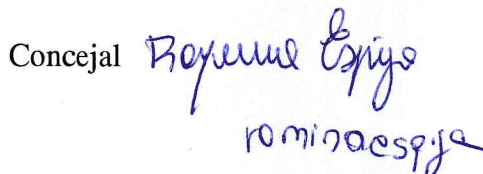 Concejal Romina Espiga
rominaespiga